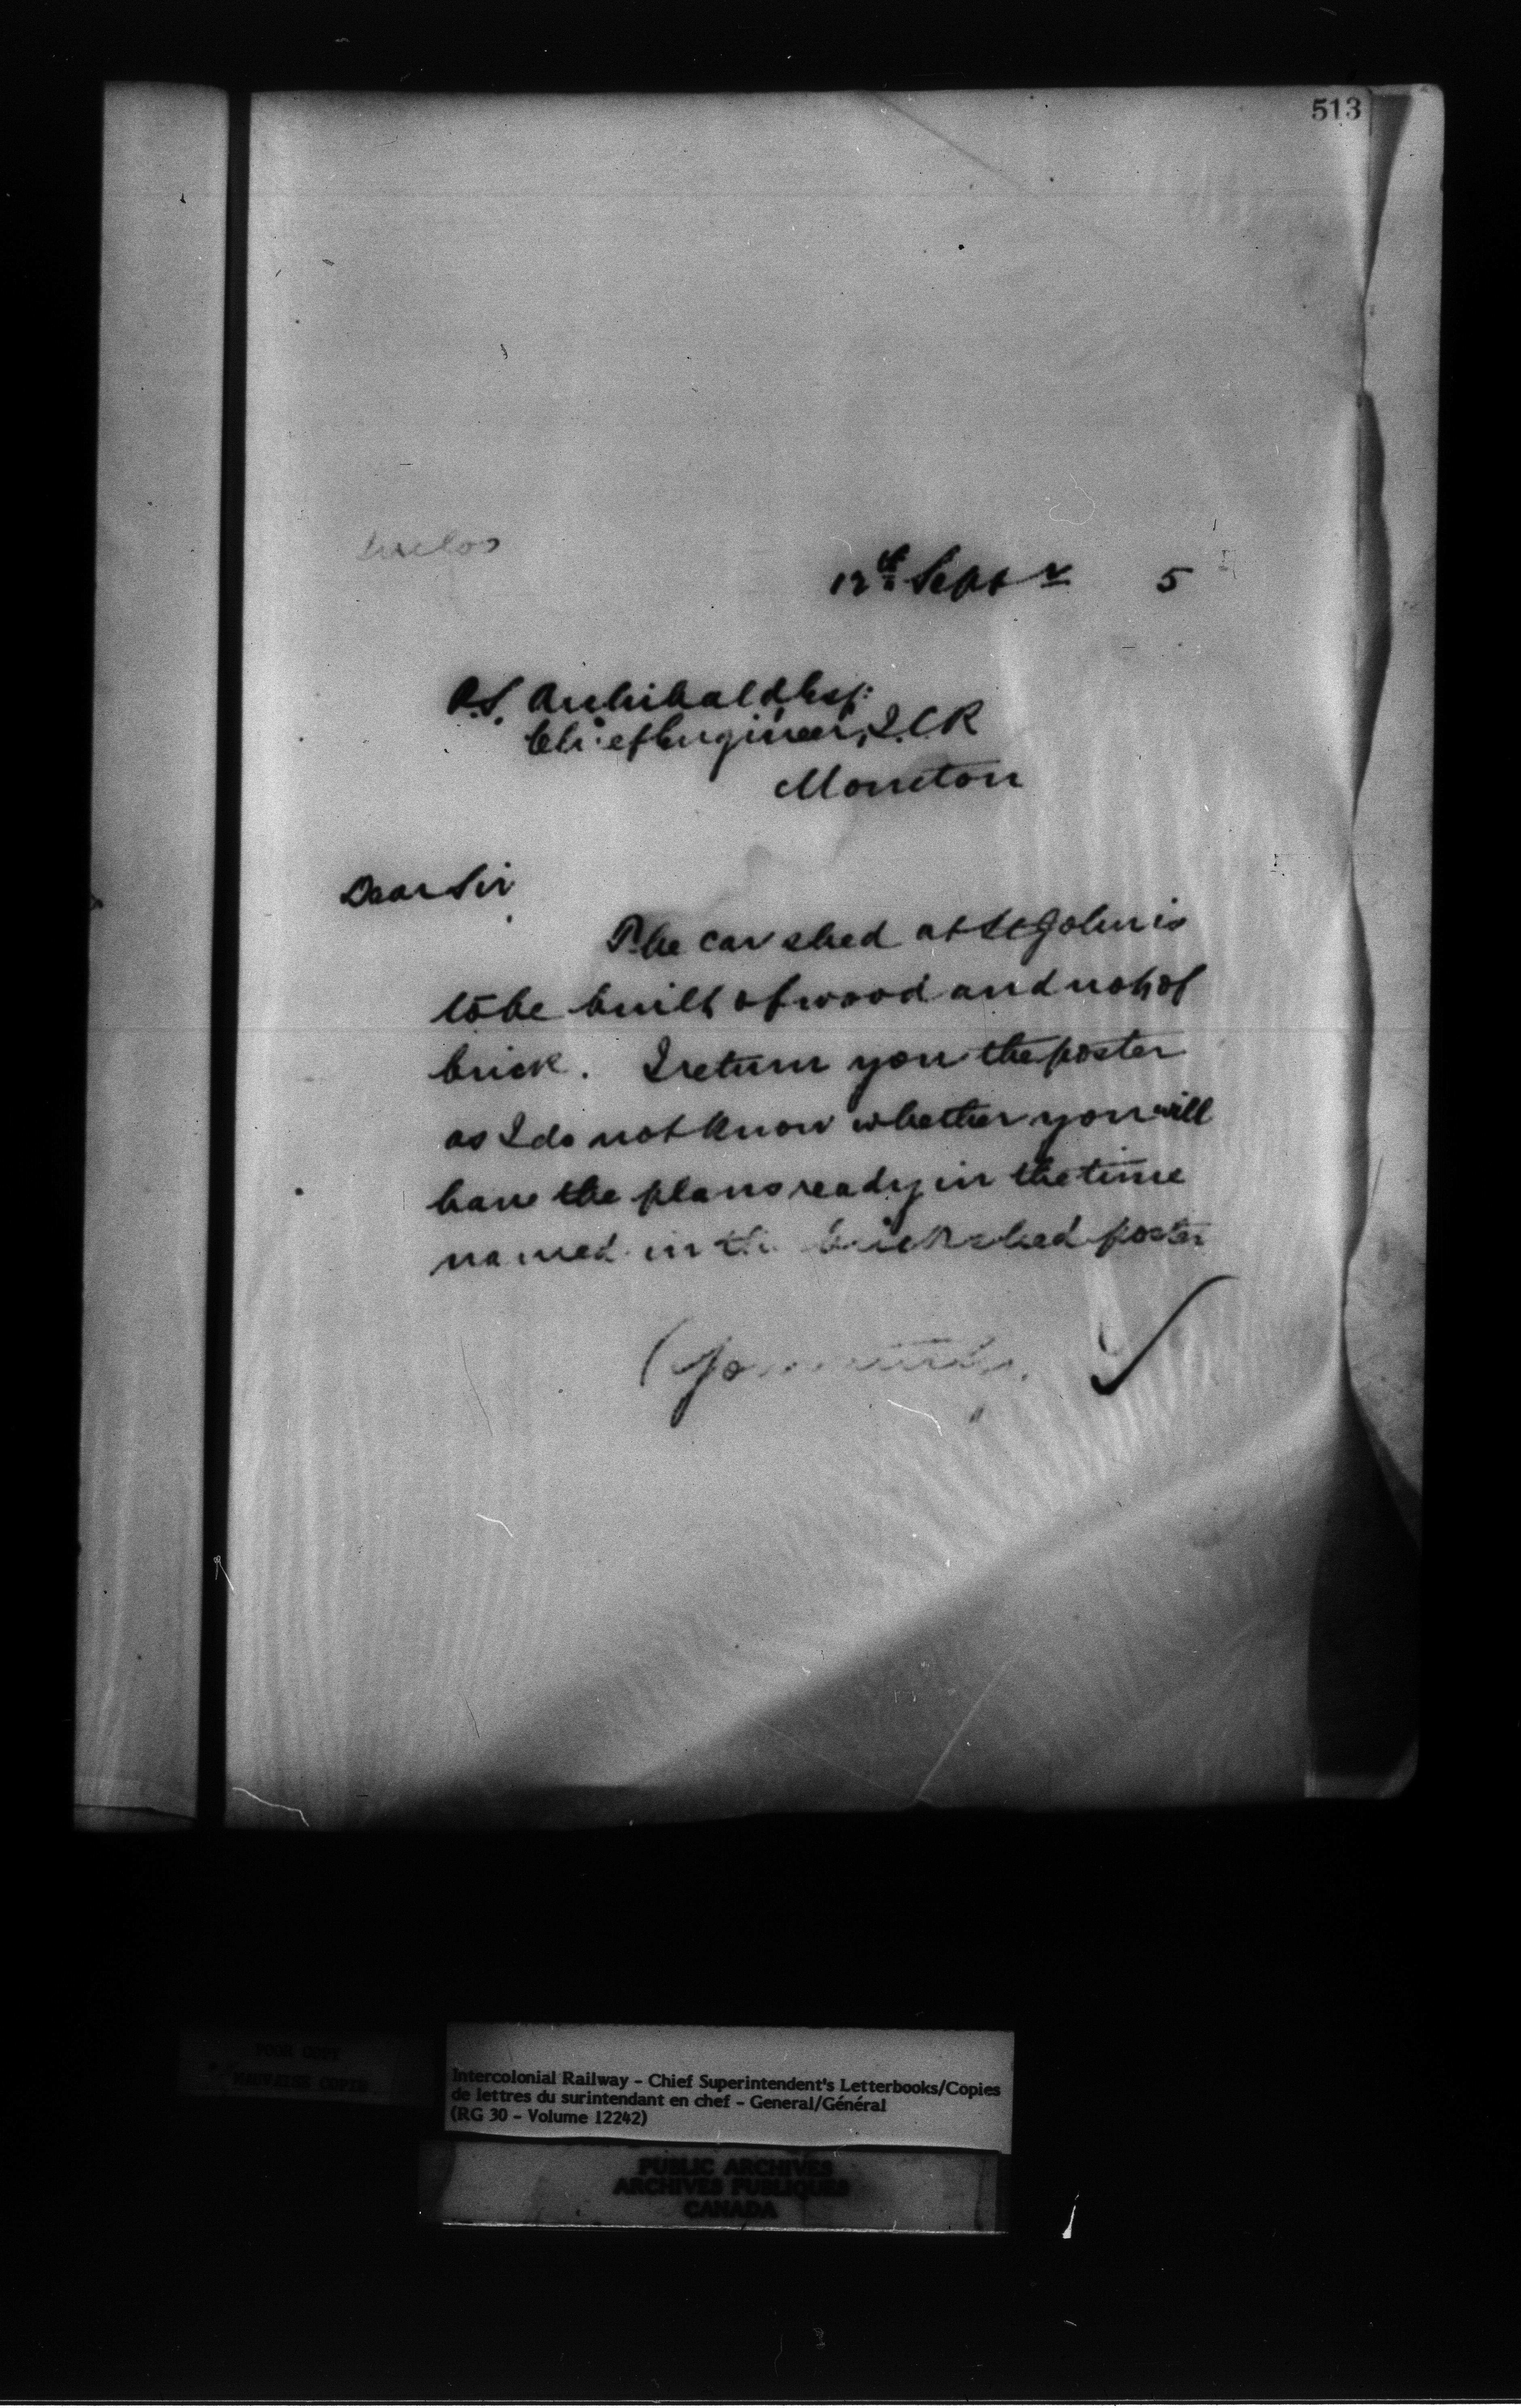 513
12th Septr 5
P.S. Archibald Esq:
Chief Engineer, I.C.R
Moncton
Dear Sir
The car shed at St John is
to be built of wood and not of
brick. I return you the poster
as I do not know whether you will
have the plans ready in the time
named in the brick shed poster
Yours truly
POOR COPY
MAUVAISE COPIE
Intercolonial Railway - Chief Superintendent's Letterbooks/Copies
de lettres du surintendant en chef - General/Général
(RG 30 - Volume 12242)
PUBLIC ARCHIVES
ARCHIVES PUBLIQUES
CANADA